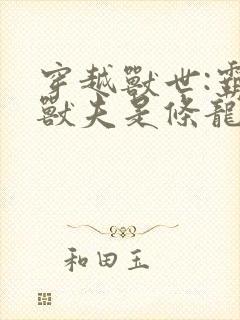 穿越獸世:霸
獸夫是條龍
和田玉